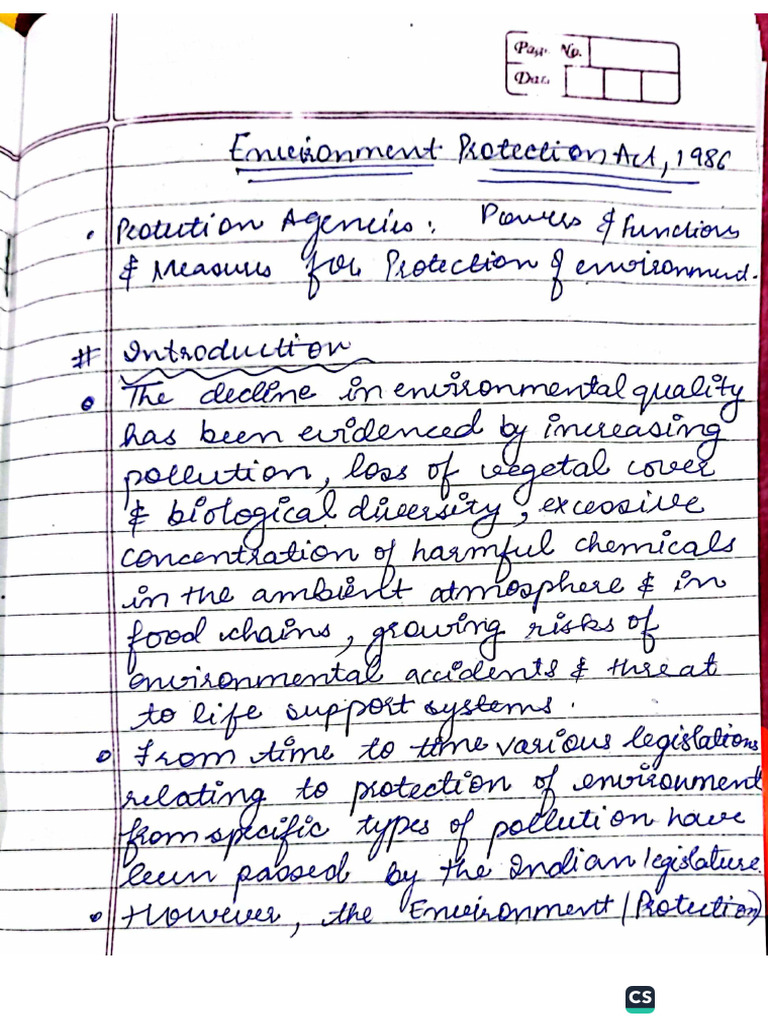 Page No.
Date
Environment Protection Act, 1986
• Protection Agencies: Powers & functions
& Measures for Protection of environment.
# Introduction
• The decline in environmental quality
has been evidenced by increasing
pollution, loss of vegetal cover
& biological diversity, excessive
concentration of harmful chemicals
in the ambient atmosphere & in
food chains, growing risks of
environmental accidents & threat
to life support systems.
• From time to time various legislations
relating to protection of environment
from specific types of pollution have
been passed by the Indian legislature.
• However, the Environment (Protection)
CS